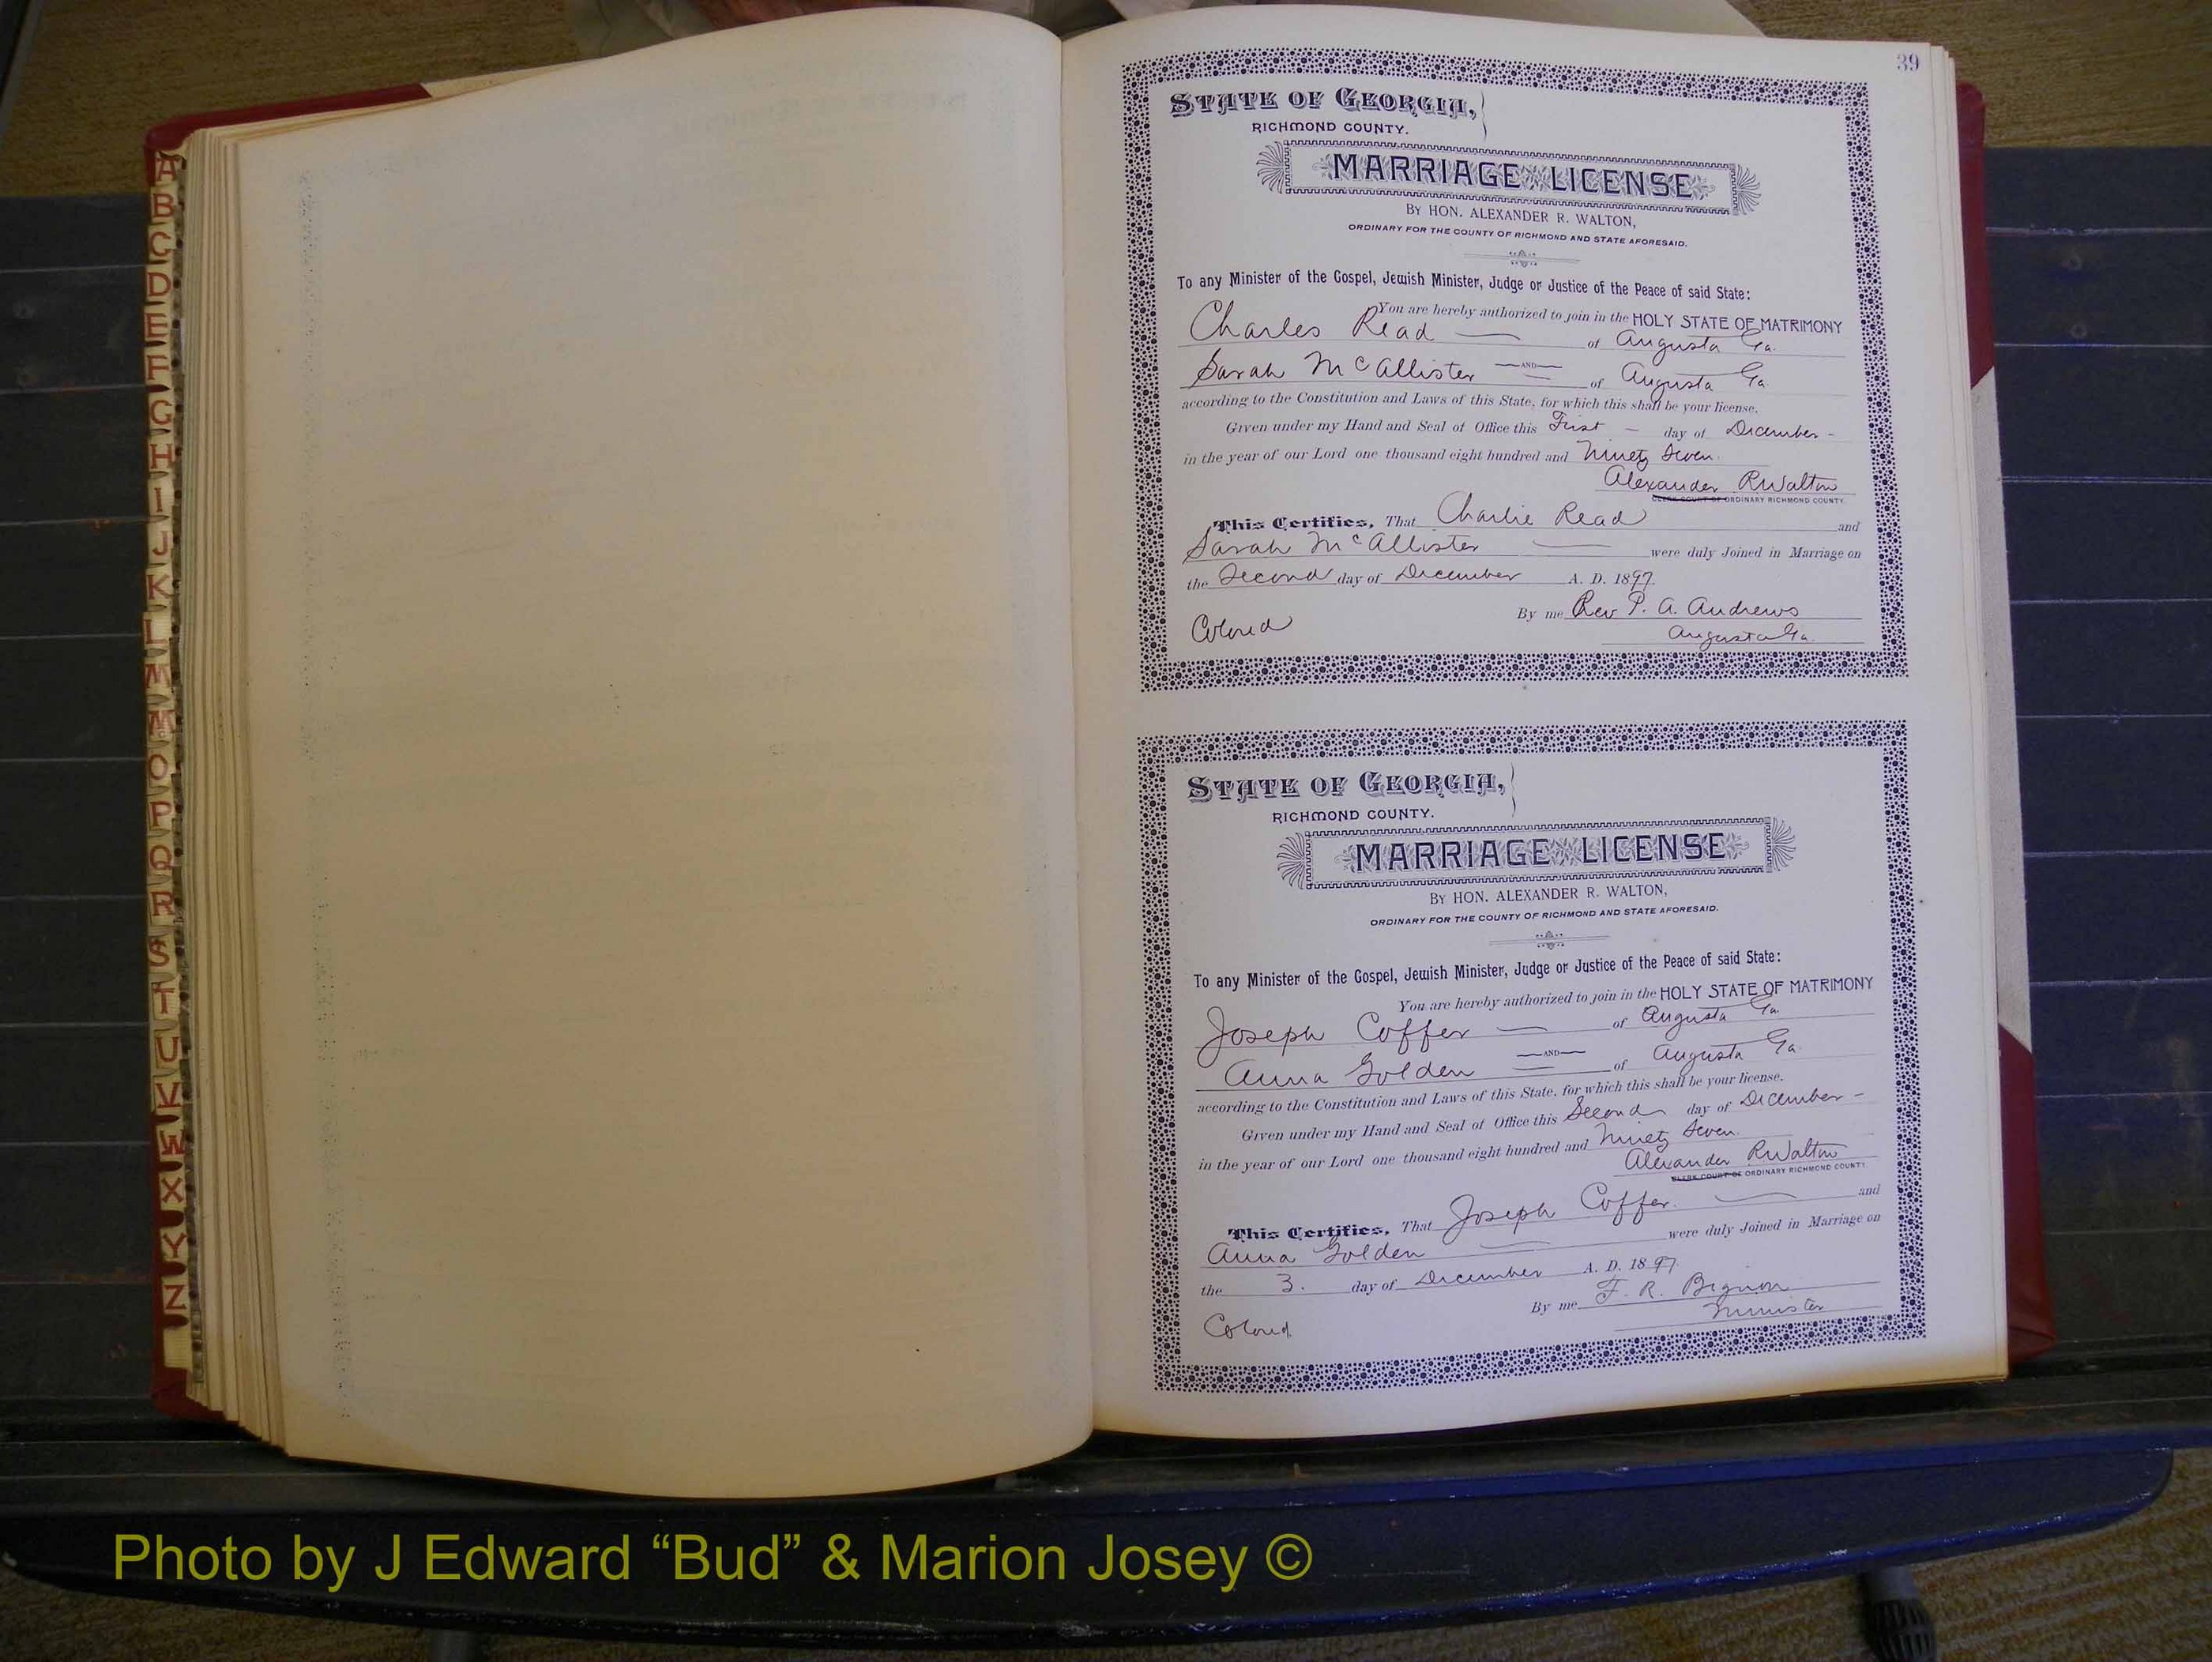 A
B
C
D
E
F
G
H
I
J
K
L
M
Mc
O
P
Q
R
S
T
U
V
W
X
Y
Z
39
STATE OF GEORGIA,
RICHMOND COUNTY.
MARRIAGE LICENSE
BY HON. ALEXANDER R. WALTON,
ORDINARY FOR THE COUNTY OF RICHMOND AND STATE AFORESAID.
To any Minister of the Gospel, Jewish Minister, Judge or Justice of the Peace of said State:
You are hereby authorized to join in the HOLY STATE OF MATRIMONY
Charles Read — of Augusta Ga.
—AND—
Sarah McAllister = of Augusta Ga.
according to the Constitution and Laws of this State, for which this shall be your license.
Given under my Hand and Seal of Office this First — day of December -
in the year of our Lord one thousand eight hundred and Ninety Seven.
Alexander R Walton
CLERK COURT OF ORDINARY RICHMOND COUNTY
This Certifies, That Charlie Read and
Sarah McAllister — were duly Joined in Marriage on
the Second day of December A. D. 1897.
By me Rev P. A. Andrews
Colored Augusta Ga.
STATE OF GEORGIA,
RICHMOND COUNTY.
MARRIAGE LICENSE
BY HON. ALEXANDER R. WALTON,
ORDINARY FOR THE COUNTY OF RICHMOND AND STATE AFORESAID.
To any Minister of the Gospel, Jewish Minister, Judge or Justice of the Peace of said State:
You are hereby authorized to join in the HOLY STATE OF MATRIMONY
Joseph Coffer — of Augusta Ga.
—AND—
Anna Golden = of Augusta Ga.
according to the Constitution and Laws of this State, for which this shall be your license.
Given under my Hand and Seal of Office this Second day of December -
in the year of our Lord one thousand eight hundred and Ninety Seven.
Alexander R Walton
CLERK COURT OF ORDINARY RICHMOND COUNTY
This Certifies, That Joseph Coffer. — and
Anna Golden — were duly Joined in Marriage on
the 3. day of December A. D. 1897.
By me F. R. Bignon
Minister
Colored.
Photo by J Edward “Bud” & Marion Josey ©